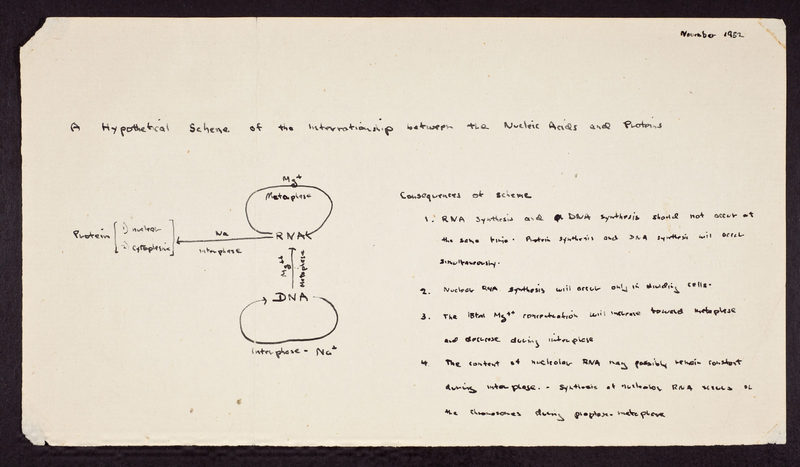 November 1952
A Hypothetical Scheme of the Interrationship between the Nucleic Acids and Protens
Mg+
Metaphase
Protein
1) nuclear
2) cytoplasmic
Na
RNA
interphase
Mg++
metaphase
DNA
Interphase - Na+
Consequences of scheme
1. RNA synthesis and DNA synthesis should not occur at
the same time. Protein synthesis and DNA synthesis will occur
simultaneously.
2. Nuclear RNA synthesis will occur only in dividing cells.
3. The total Mg++ concentration will increase toward metaphase
and decrease during interphase
4. The content of nucleolar RNA may possibly remain constant
during interphase. - Synthesis of nucleolar RNA occurs on
the chromosomes during prophase-metaphase